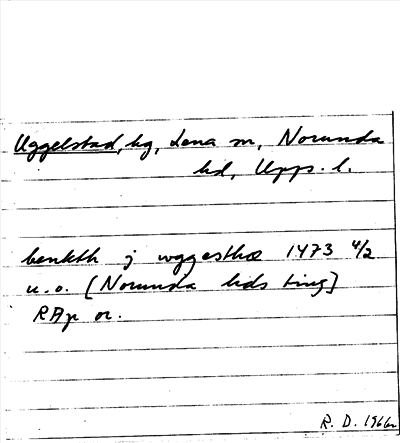 Uggelstad, by, Lena sn, Norunda
hd, Upps. l.
benkth j wggesthæ 1473 4/2
u.o. [Norunda hds ting]
RAp or.
R. D. 1966